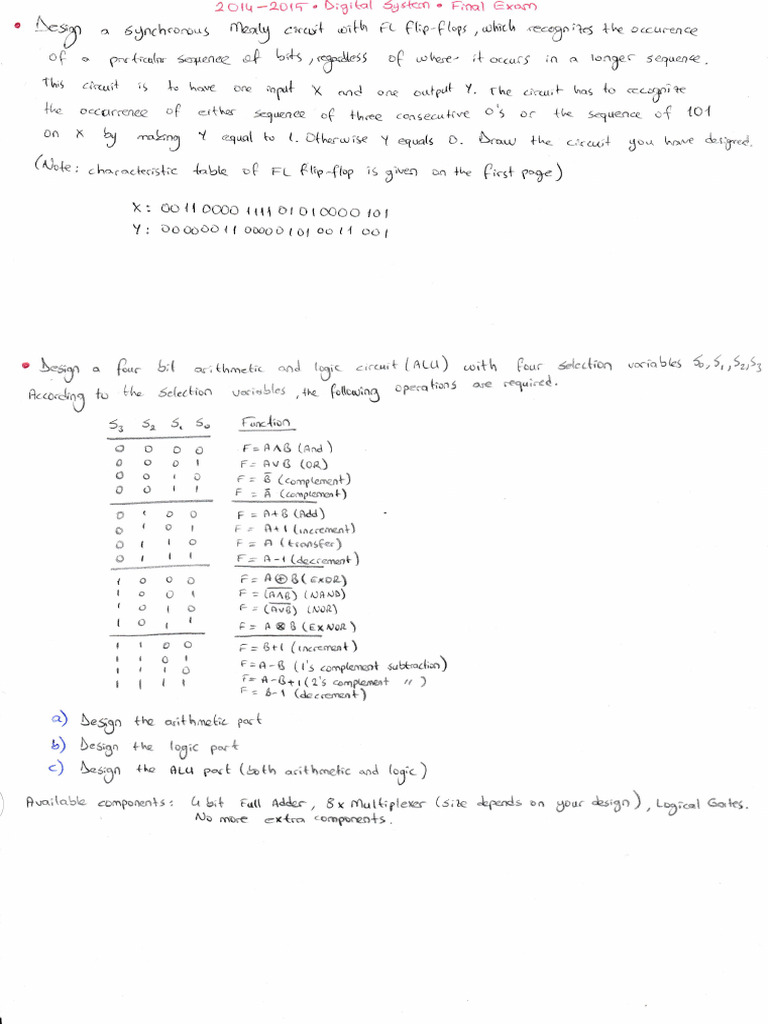 2014-2015 • Digital System • Final Exam
• Design a synchronous Mealy circuit with FL flip-flops, which recognizes the occurence
of a particular sequence of bits, regardless of where it occurs in a longer sequence.
This circuit is to have one input X and one output Y. The circuit has to recognize
the occurrence of either sequence of three consecutive 0's or the sequence of 101
on X by making Y equal to 1. Otherwise Y equals 0. Draw the circuit you have designed.
(Note: characteristic table of FL flip-flop is given on the first page)
X: 00110000 1111 01010000101
Y: 00000011 00000101 0011 001
• Design a four bit arithmetic and logic circuit (ALU) with four selection variables S0, S1, S2, S3
According to the selection variables, the following operations are required.
S3 S2 S1 S0 Function
0 0 0 0 F = A∧B (And)
0 0 0 1 F = A∨B (OR)
0 0 1 0 F = B̅ (complement)
0 0 1 1 F = A̅ (complement)
0 1 0 0 F = A+B (Add)
0 1 0 1 F = A+1 (increment)
0 1 1 0 F = A (transfer)
0 1 1 1 F = A-1 (decrement)
1 0 0 0 F = A⊕B (EXOR)
1 0 0 1 F = (A∧B)̅ (NAND)
1 0 1 0 F = (A∨B)̅ (NOR)
1 0 1 1 F = A⊗B (EXNOR)
1 1 0 0 F = B+1 (increment)
1 1 0 1 F = A-B (1's complement subtraction)
1 1 1 0 F = A-B+1 (2's complement " )
1 1 1 1 F = b-1 (decrement)
a) Design the arithmetic part
b) Design the logic part
c) Design the ALU part (both arithmetic and logic)
Available components: 4 bit Full Adder, 8x Multiplexer (size depends on your design), Logical Gates.
No more extra components.